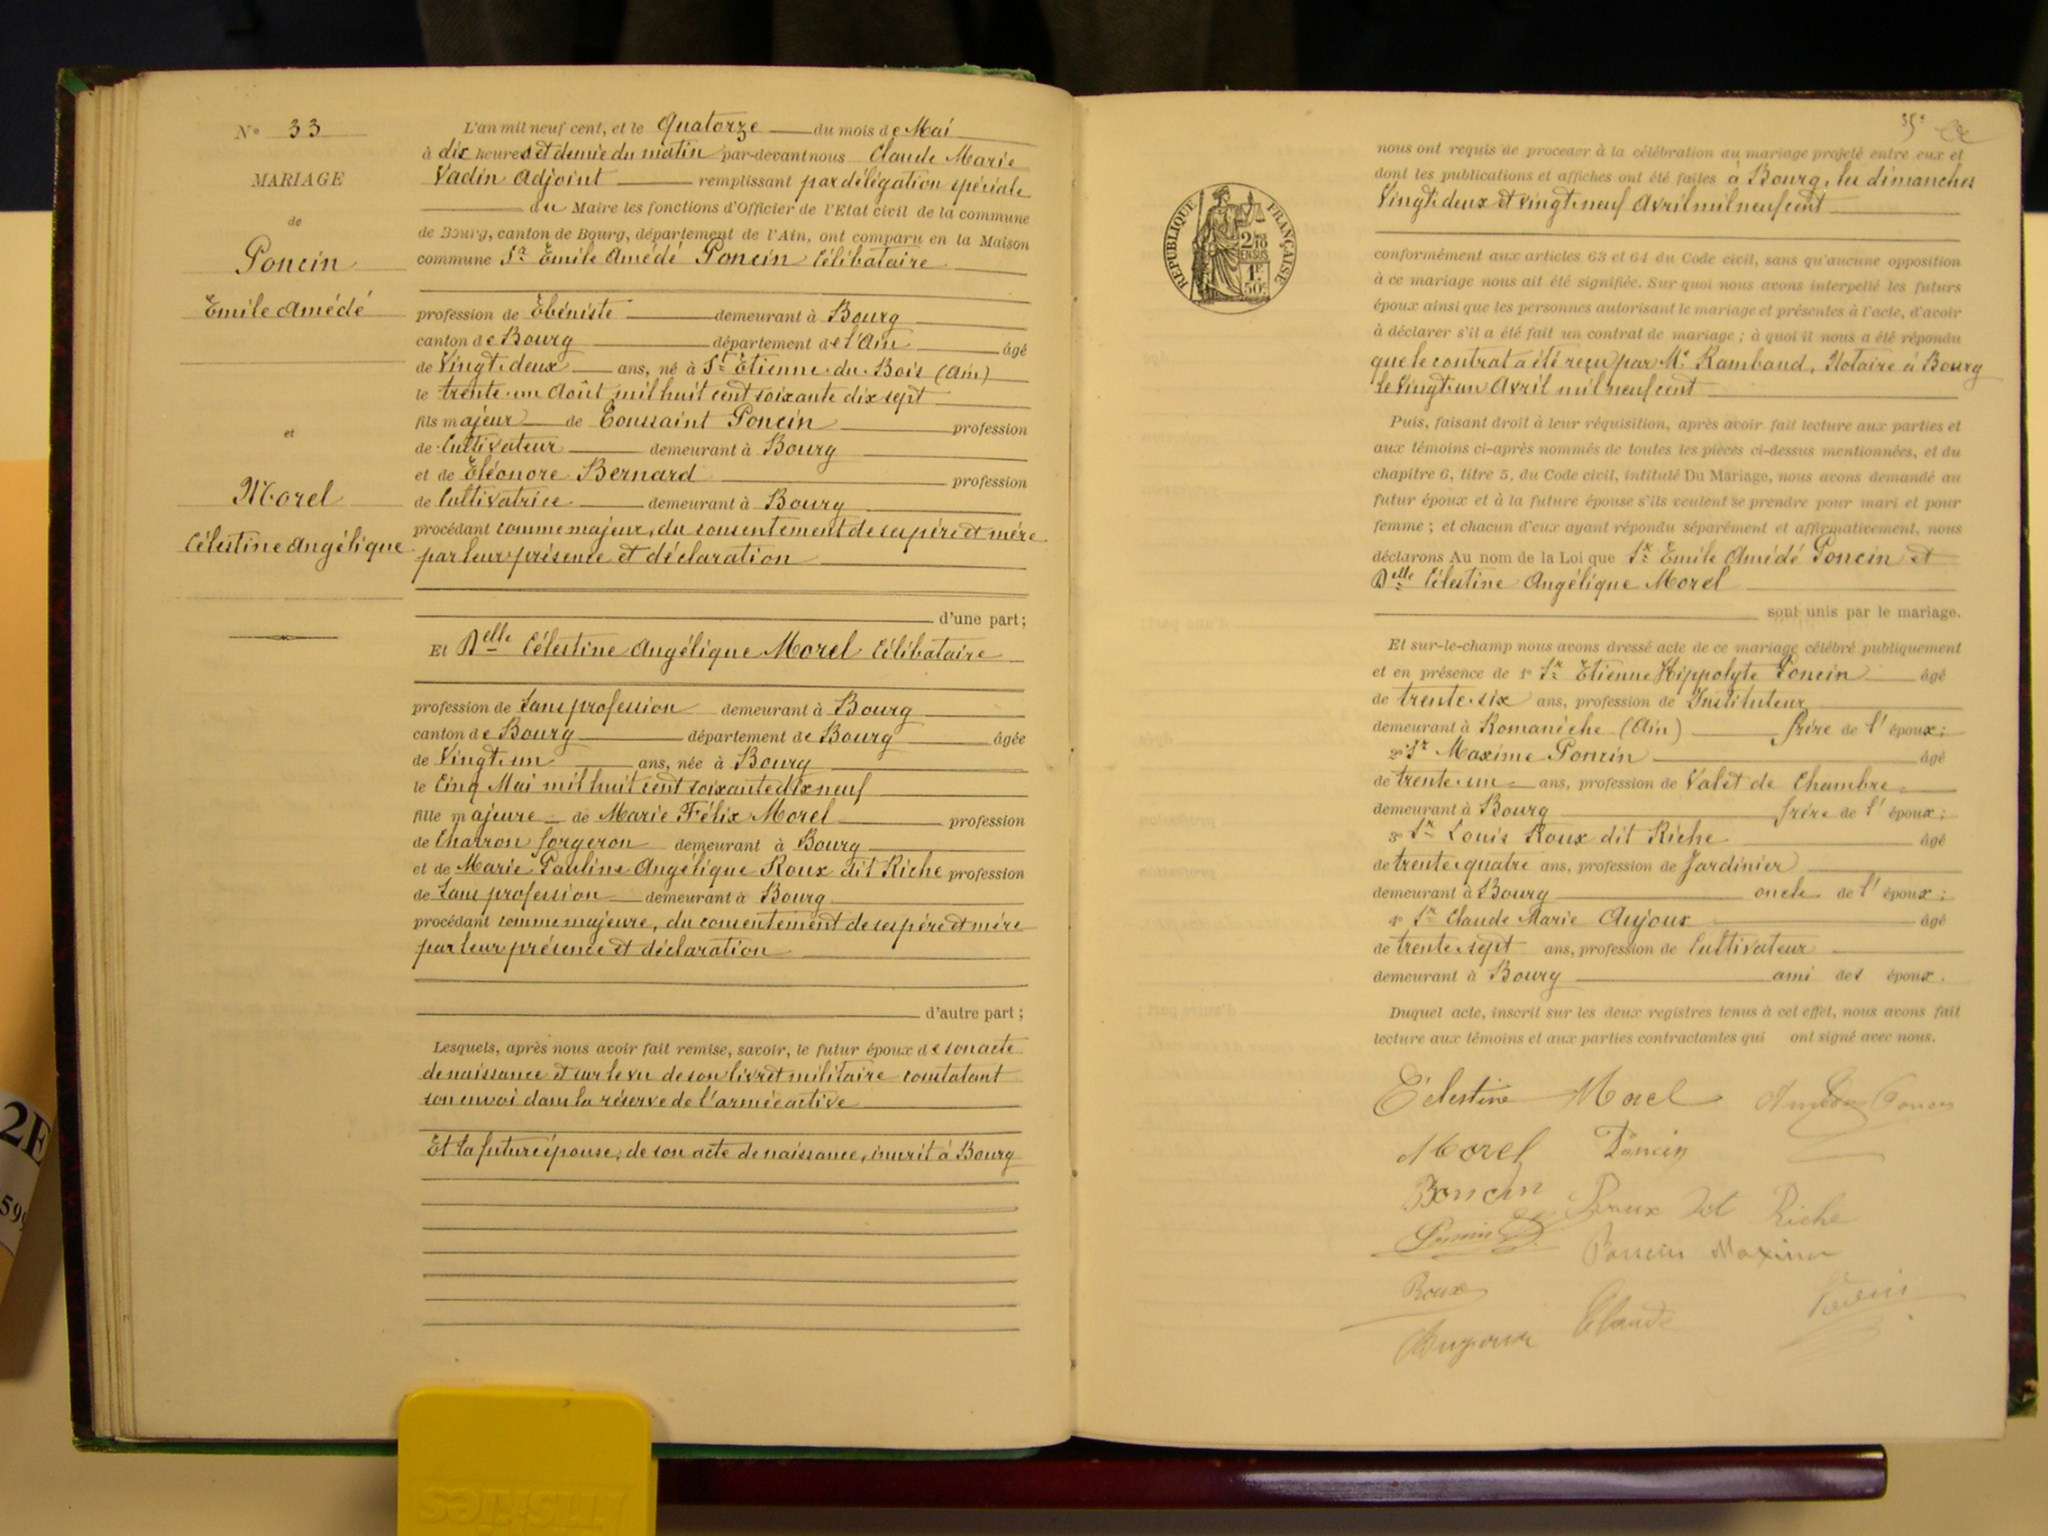 N° 33
MARIAGE
de
Poncin
Emile Amédé
et
Morel
Célestine Angélique
L'an mil neuf cent, et le Quatorze du mois de Mai
à dix heures et demie du matin par-devant nous Claude Marie
Vadin Adjoint remplissant par délégation spéciale
du Maire les fonctions d'Officier de l'Etat civil de la commune
de Bourg, canton de Bourg, département de l'Ain, ont comparu en la Maison
commune Sr Emile Amédé Poncin Célibataire
profession de Ebéniste demeurant à Bourg
canton de Bourg département de l'Ain âgé
de Vingt-deux ans, né à St Etienne-du-Bois (Ain)
le trente-un Août mil huit cent soixante dix sept
fils majeur de Toussaint Poncin profession
de Cultivateur demeurant à Bourg
et de Eléonore Bernard profession
de Cultivatrice demeurant à Bourg
procédant comme majeur, du consentement de ses père et mère
par leur présence et déclaration
d'une part;
Et Delle Célestine Angélique Morel Célibataire
profession de Sans profession demeurant à Bourg
canton de Bourg département de Bourg âgée
de Vingt-un ans, née à Bourg
le Cinq Mai mil huit cent soixante dix neuf
fille majeure de Marie Félix Morel profession
de Charron forgeron demeurant à Bourg
et de Marie Pauline Angélique Roux dit Riche profession
de Sans profession demeurant à Bourg
procédant comme majeure, du consentement de ses père et mère
par leur présence et déclaration
d'autre part;
Lesquels, après nous avoir fait remise, savoir, le futur époux de son acte
de naissance et sur le vu de son livret militaire constatant
son envoi dans la réserve de l'armée active
Et la future épouse, de son acte de naissance, inscrit à Bourg
35e
RÉPUBLIQUE FRANÇAISE
2/10
EN SUS
1F
50c
nous ont requis de procéder à la célébration du mariage projeté entre eux et
dont les publications et affiches ont été faites à Bourg, les dimanches
Vingt-deux et vingt-neuf Avril mil neuf cent
conformément aux articles 63 et 64 du Code civil, sans qu'aucune opposition
à ce mariage nous ait été signifiée. Sur quoi nous avons interpellé les futurs
époux ainsi que les personnes autorisant le mariage et présentes à l'acte, d'avoir
à déclarer s'il a été fait un contrat de mariage; à quoi il nous a été répondu
que le contrat a été reçu par Me Rambaud, Notaire à Bourg
le Vingt-un Avril mil neuf cent
Puis, faisant droit à leur réquisition, après avoir fait lecture aux parties et
aux témoins ci-après nommés de toutes les pièces ci-dessus mentionnées, et du
chapitre 6, titre 5, du Code civil, intitulé Du Mariage, nous avons demandé au
futur époux et à la future épouse s'ils veulent se prendre pour mari et pour
femme; et chacun d'eux ayant répondu séparément et affirmativement, nous
déclarons Au nom de la Loi que Sr Emile Amédé Poncin et
Delle Célestine Angélique Morel
sont unis par le mariage.
Et sur-le-champ nous avons dressé acte de ce mariage célébré publiquement
et en présence de 1° Sr Etienne Hippolyte Poncin âgé
de trente-six ans, profession de Instituteur
demeurant à Romanèche (Ain) frère de l'époux;
2° Sr Maxime Poncin âgé
de trente-un ans, profession de Valet de Chambre
demeurant à Bourg frère de l'époux;
3° Sr Louis Roux dit Riche âgé
de trente-quatre ans, profession de Jardinier
demeurant à Bourg oncle de l'époux;
4° Sr Claude Marie Aujoux âgé
de trente-sept ans, profession de Cultivateur
demeurant à Bourg ami des époux.
Duquel acte, inscrit sur les deux registres tenus à cet effet, nous avons fait
lecture aux témoins et aux parties contractantes qui ont signé avec nous.
Célestine Morel Amédé Poncin
Morel Poncin
Poncin Roux dit Riche
Poncin Poncin Maxime
Roux
Claude Vadin
2E